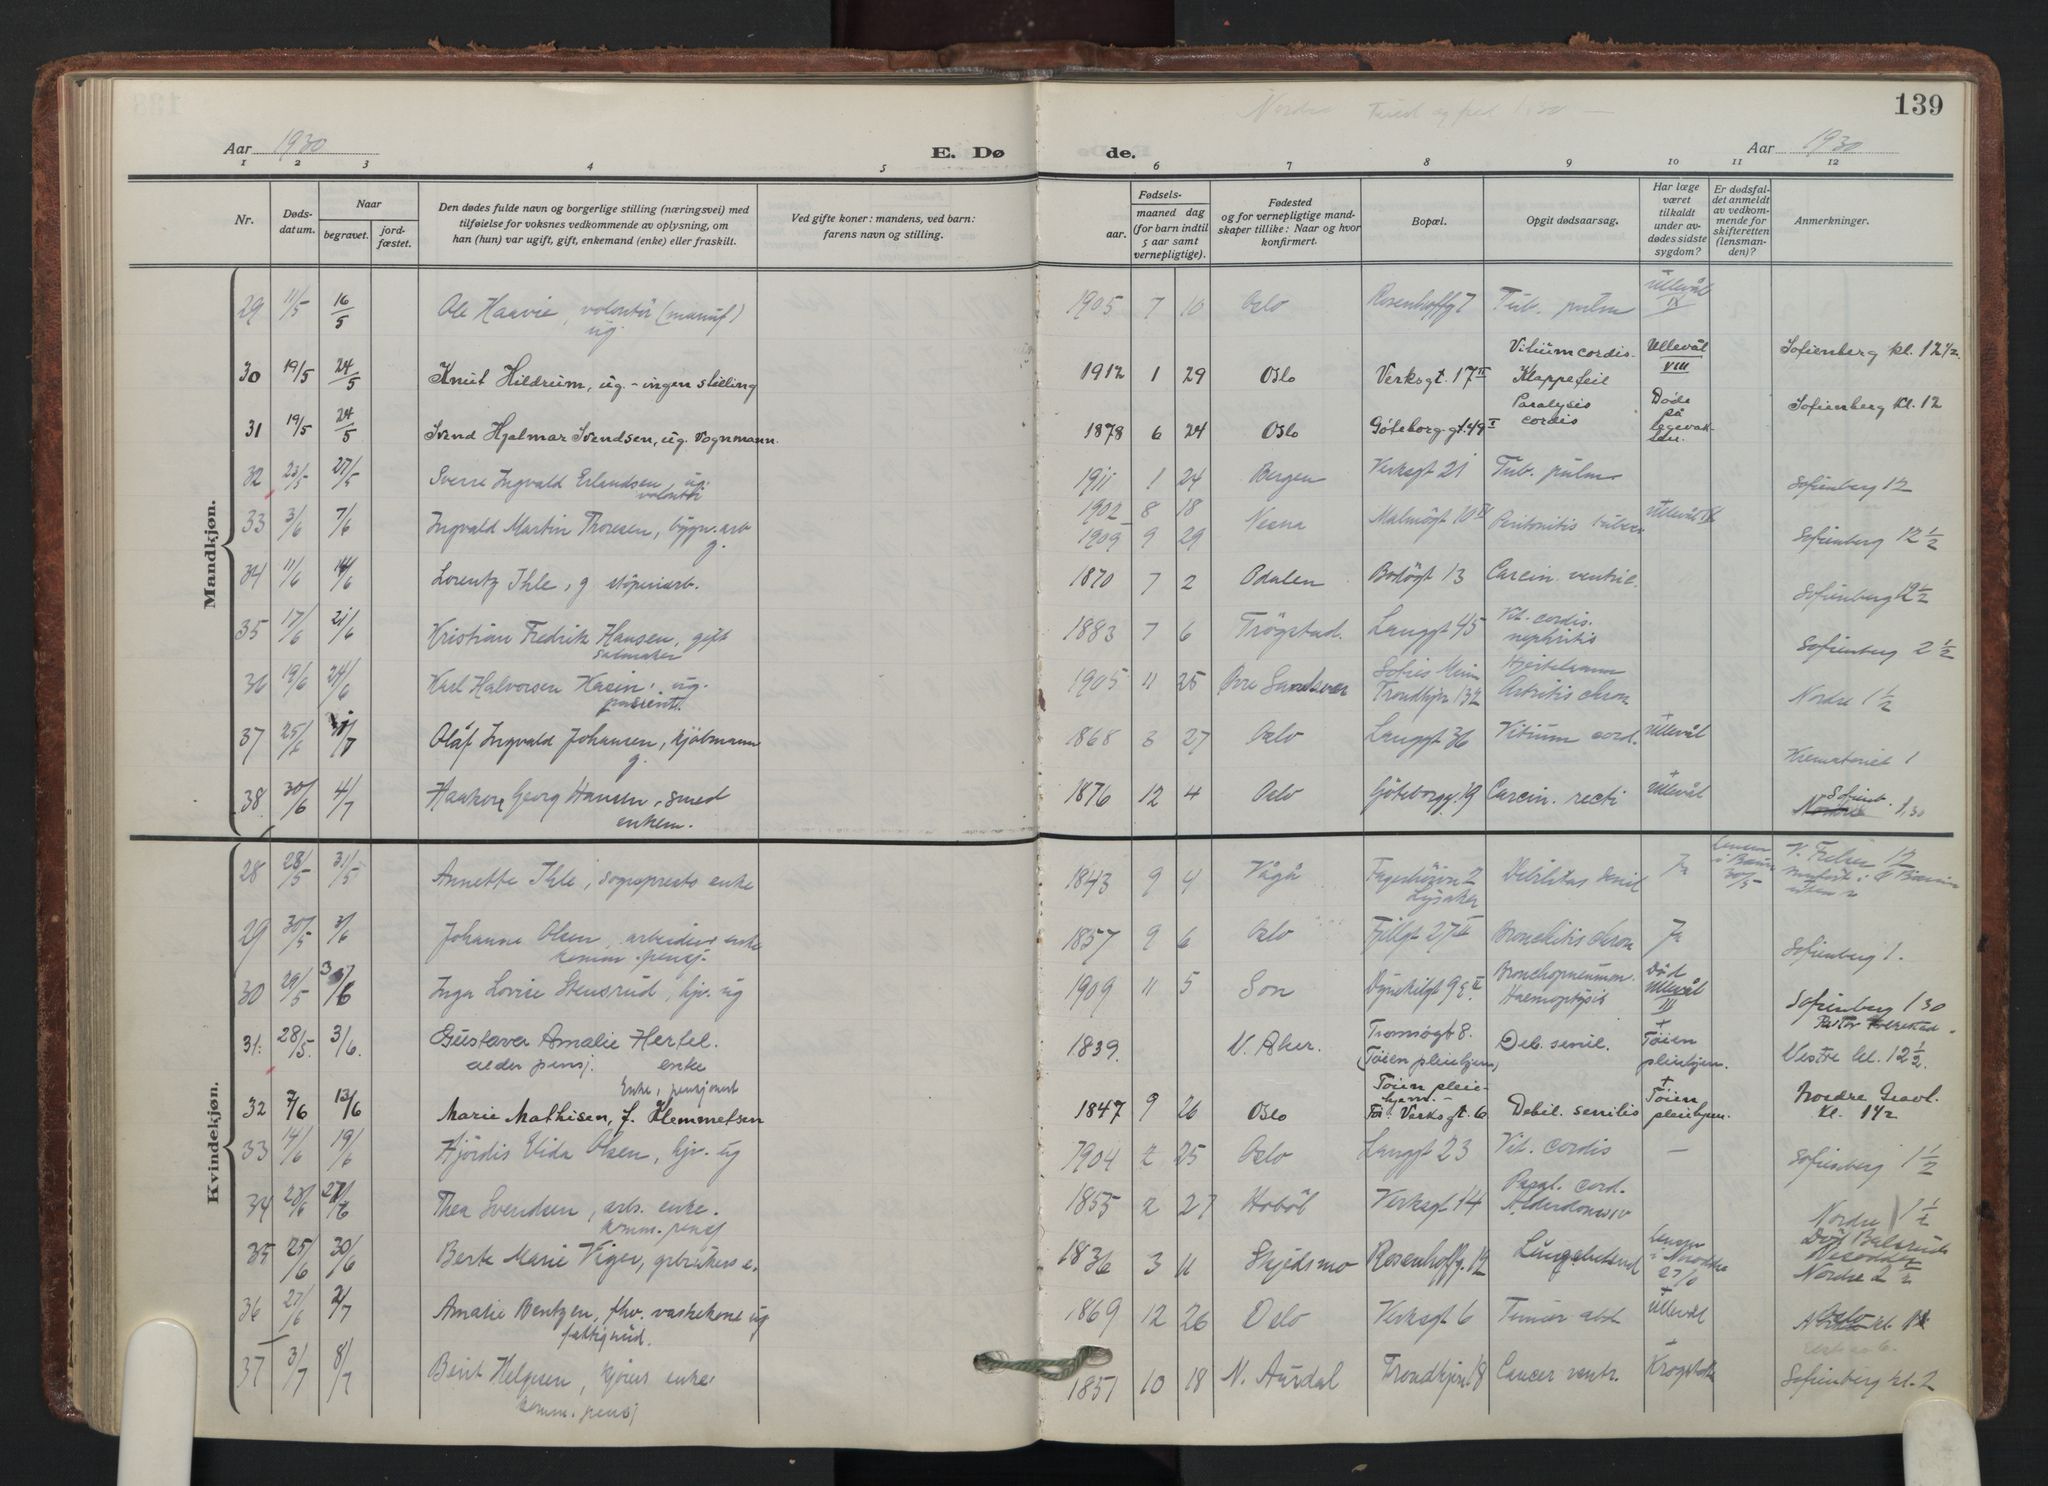 139
Aar 1930
E. Døde.
Aar 1930
1 2 3 4 5 6 7 8 9 10 11 12
Nr.
Døds-
datum.
Naar
begravet.
jord-
fæstet.
Den dødes fulde navn og borgerlige stilling (næringsvei) med
tilføielse for voksnes vedkommende av oplysning, om
han (hun) var ugift, gift, enkemand (enke) eller fraskilt.
Ved gifte koner: mandens, ved barn:
farens navn og stilling.
Fødsels-
aar.
maaned dag
(for barn indtil
5 aar samt
vernepligtige).
Fødested
og for vernepligtige mand-
skaper tillike: Naar og hvor
konfirmert.
Bopæl.
Opgit dødsaarsag.
Har læge
været
tilkaldt
under av-
dødes sidste
sygdom?
Er dødsfal-
det anmeldt
av vedkom-
mende for
skifteretten
(lensman-
den)?
Anmerkninger.
Mandkjøn.
29 11/5 16/5 Ole Haavie, volontör (manuf) ug. 1905 7 10 Oslo Rosenhoffgt 7 Tub. pulm + Ullevål IX
30 19/5 24/5 Knut Hildrum, ug. - ingen stilling 1912 1 29 Oslo Verksgt. 17 II Vitium cordis. Klappefeil Ullevål VIII Sofienberg kl. 12 1/2.
31 19/5 24/5 Svend Hjalmar Svendsen, ug. Vognmann. 1878 6 24 Oslo Göteborg.gt. 49 I Paralysis cordis Døde på legevakten. Sofienberg kl. 12
32 23/5 27/5 Sverre Ingvald Erlandsen, ug. volontör 1911 1 24 Bergen Verksgt 21 Tub. pulm Sofienberg 12
33 3/6 7/6 Ingvald Martin Thoresen, bygn. arb g. 1902 8 18 1909 9 29 Nesna Malmögt 10 Peritonitis tuberc + Ullevål Sofienberg 12 1/2
34 11/6 14/6 Lorentz Ihle, g støperiarb. 1870 7 2 Odalen Bodögt 13 Carcin. ventric. Sofienberg 12 1/2
35 17/6 21/6 Kristian Fredrik Hansen, gift salmaker 1883 7 6 Trögstad. Langgt 45 Vit. cordis. nephritis Sofienberg 2 1/2
36 19/6 24/6 Karl Halvorsen Kasin, ug. pasient. 1905 11 25 Övre Sandsver Sofies Minn Trondhjv 132 Artritis chron Nordre 1 1/2
37 25/6 1/7 Olaf Ingvald Johansen, kjöbmann g. 1868 3 27 Oslo Langgt 36 Vitium cord. + Ullevål Krematoriet 1
38. 30/6 4/7 Haakon Georg Hansen, smed enkem. 1876 12 4 Oslo Göteborgg. 19 Carcin. recti + Ullevål Sofienb. Nordre 1,30
Kvindekjøn.
28 28/5 31/5 Annette Ihle, sogneprests enke 1843 9 4 Vågå Lysaker Debilitas senil Ja
29 30/5 3/6 Johanne Olsen, arbeiders enke komm. pensj. 1857 9 6 Oslo Fjellgt 27 II Bronchitis chron Ja Sofienberg 1.
30 29/5 3/6 Inga Lovise Stensrud, hjv. ug 1909 11 5 Son Dynekilgt 9 Bronchopneumon. Haemoptysis Död Ullevål III Sofienberg 1 30
31. 28/5. 3/6. Gustava Amalie Hertel. alder pensj. enke 1839. V. Aker. Tromsøgt 8. (Tøien pleiehjem) Deb. senil. + Tøien pleiehjem. Vestre kl. 12 1/2.
32 7/6 13/6 Enke, pensjonert Marie Mathisen, f. Klemmetsen 1847 9 26 Oslo Tøien pleiehjem. - Før Verksgt. 6 Debil. senilis + Tøien pleiehjem. Nordre Gravl. kl. 1 1/2
33 14/6 19/6 Hjördis Vida Olsen, hjv. ug 1904 2 25 Oslo Langgt 23 Vit. cordis — Sofienberg 1 1/2
34 23/6 27/6 Thea Svendsen, arb. enke. komm. pensj 1855 2 27 Hobøl Verksgt 14 Paral. cord. Nordre 1 1/2
35 25/6 30/6 Berte Marie Viger, gebrukers e. 1836 3 11 Skjedsmo Rosenhoffg. 12 Lungebetend Nordre 2 1/2
36 27/6 2/7 Amalie Bentzen, fhv. vaskekone ug fattigund. 1869 12 26 Oslo Verksgt 6 Tumor abd + Ullevål
37 3/7 8/7 Berit Helgesen, kjörers enke. komm. pensj 1857 10 18 N. Aurdal Trondhjv. 18 Cancer ventr. + Krogstöt Sofienberg kl. 2